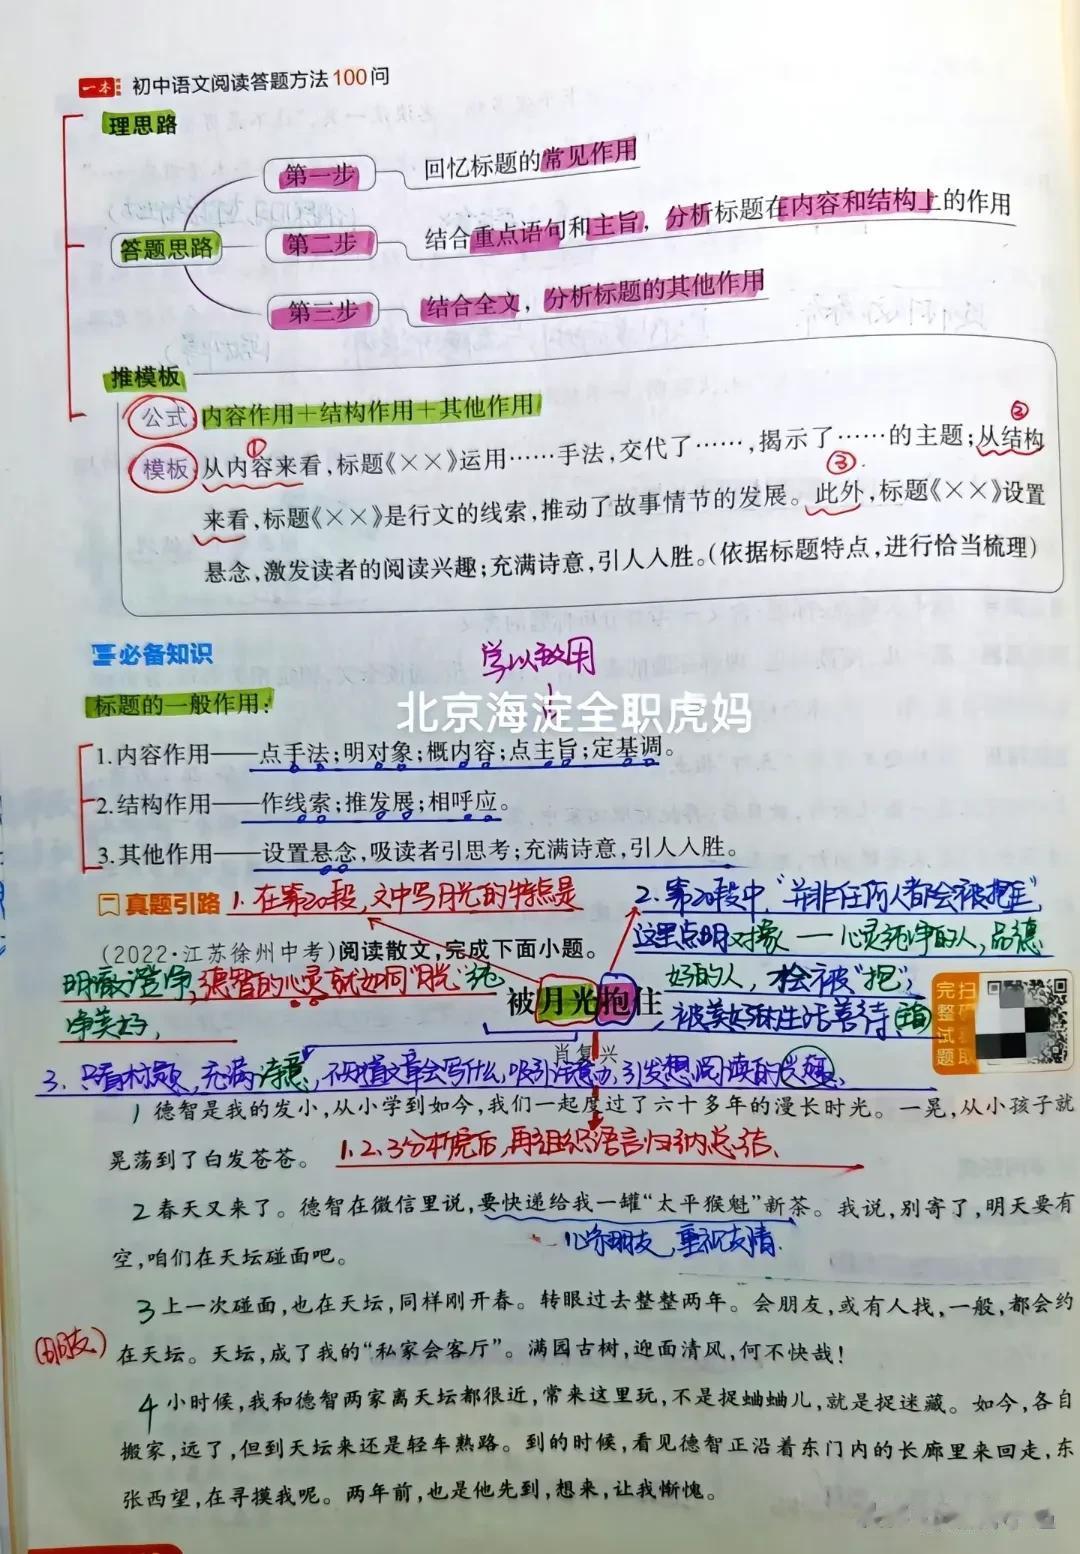 一本 初中语文阅读答题方法100问
理思路
答题思路
第一步 回忆标题的常见作用
第二步 结合重点语句和主旨，分析标题在内容和结构上的作用
第三步 结合全文，分析标题的其他作用
推模板
公式 内容作用＋结构作用＋其他作用
① ② ③
模板 从内容来看，标题《××》运用……手法，交代了……，揭示了……的主题；从结构
来看，标题《××》是行文的线索，推动了故事情节的发展。此外，标题《××》设置
悬念，激发读者的阅读兴趣；充满诗意，引人入胜。（依据标题特点，进行恰当梳理）
必备知识
学以致用
北京海淀全职虎妈
标题的一般作用：
1.内容作用——点手法；明对象；概内容；点主旨；定基调。
2.结构作用——作线索；推发展；相呼应。
3.其他作用——设置悬念，吸读者引思考；充满诗意，引人入胜。
真题引路
1.在第20段，文中写月光的特点是
明澈澄净，德智的心灵就如同"月光"纯
净美好，
2.第20段中，"并非任何人都会被抱住"，
这里点明对象——心灵纯净的人，品德
好的人，才会被"抱"；
被美好和生活善待
（2022·江苏徐州中考）阅读散文，完成下面小题。
被月光抱住
肖复兴
扫码获取
完整试题
3.只看标题，充满诗意，不知道文章会写什么，吸引注意力，引发想阅读的兴趣，
1 德智是我的发小，从小学到如今，我们一起度过了六十多年的漫长时光。一晃，从小孩子就
晃荡到了白发苍苍。
1.2.3分析完后，再组织语言归纳总结、
2 春天又来了。德智在微信里说，要快递给我一罐“太平猴魁”新茶。我说，别寄了，明天要有
空，咱们在天坛碰面吧。
心系朋友，重视友情.
3 上一次碰面，也在天坛，同样刚开春。转眼过去整整两年。会朋友，或有人找，一般，都会约
在天坛。天坛，成了我的“私家会客厅”。满园古树，迎面清风，何不快哉！
4 小时候，我和德智两家离天坛都很近，常来这里玩，不是捉蛐蛐儿，就是捉迷藏。如今，各自
搬家，远了，但到天坛来还是轻车熟路。到的时候，看见德智正沿着东门内的长廊里来回走，东
张西望，在寻摸我呢。两年前，也是他先到，想来，让我惭愧。